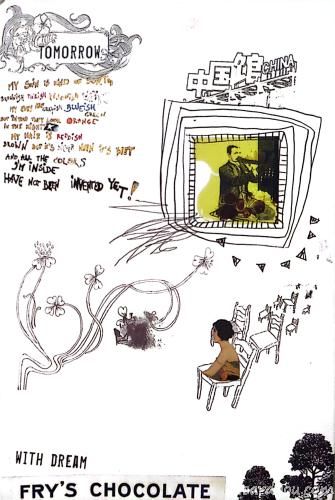 TOMORROW
中国 CHINA
MY SKIN IS KIND OF SORT
BROWNISH PINKISH YELLOWISH
MY EYES ARE GREYISH BLUEISH
GREEN
BUT I'M TOLD THEY LOOK ORANGE
IN THE NIGHT
MY HAIR IS REDDISH
BROWN BUT IT'S SILVER WHEN IT'S WET
AND ALL THE COLORS
I'M INSIDE
HAVE NOT BEEN INVENTED YET!
WITH DREAM
FRY'S CHOCOLATE